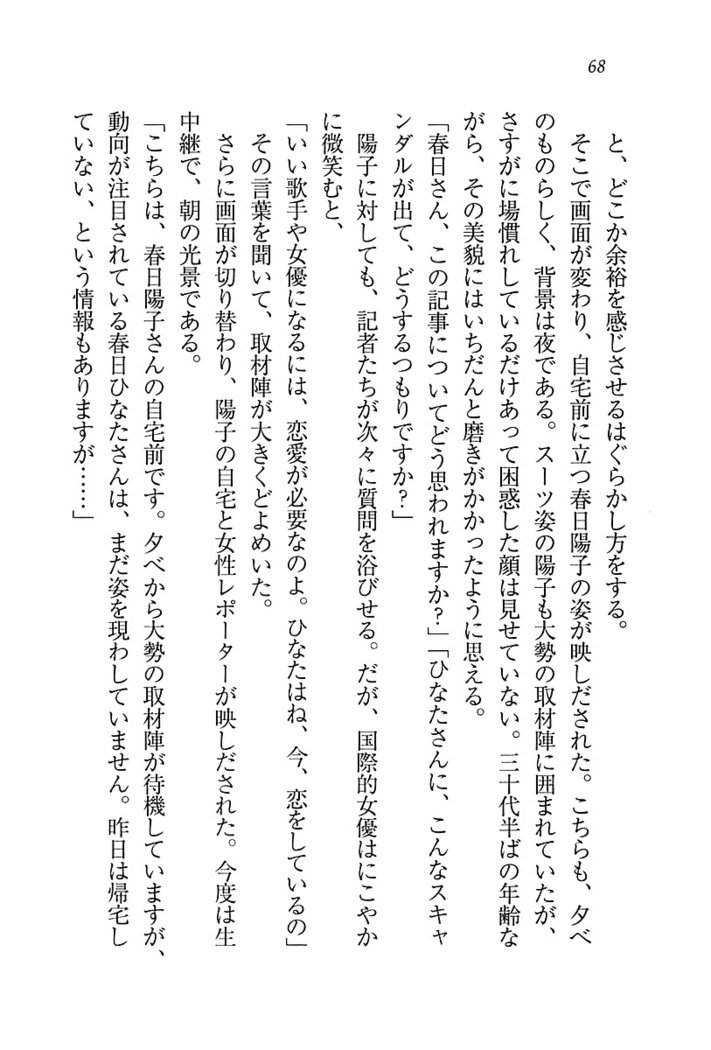 68
と、どこか余裕を感じさせるはぐらかし方をする。
そこで画面が変わり、自宅前に立つ春日陽子の姿が映しだされた。こちらも、夕べ
のものらしく、背景は夜である。スーツ姿の陽子も大勢の取材陣に囲まれていたが、
さすがに場慣れしているだけあって困惑した顔は見せていない。三十代半ばの年齢な
がら、その美貌にはいちだんと磨きがかかったように思える。
「春日さん、この記事についてどう思われますか?」「ひなたさんに、こんなスキャ
ンダルが出て、どうするつもりですか?」
陽子に対しても、記者たちが次々に質問を浴びせる。だが、国際的女優はにこやか
に微笑むと、
「いい歌手や女優になるには、恋愛が必要なのよ。ひなたはね、今、恋をしているの」
その言葉を聞いて、取材陣が大きくどよめいた。
さらに画面が切り替わり、陽子の自宅と女性レポーターが映しだされた。今度は生
中継で、朝の光景である。
「こちらは、春日陽子さんの自宅前です。夕べから大勢の取材陣が待機していますが、
動向が注目されている春日ひなたさんは、まだ姿を現わしていません。昨日は帰宅し
ていない、という情報もありますが……」